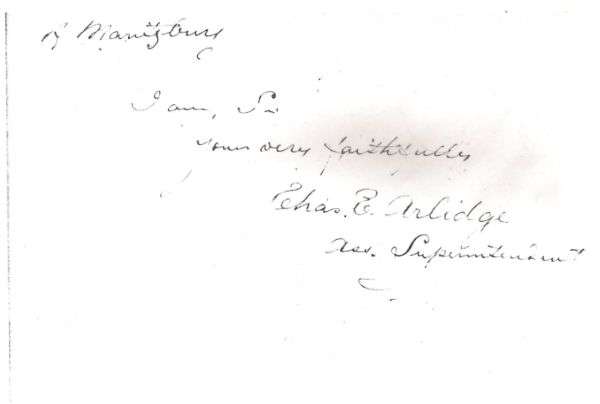 of Maritzburg
I am, Sir
Yours very faithfully
Chas. E. Arlidge
Ass. Superintendent